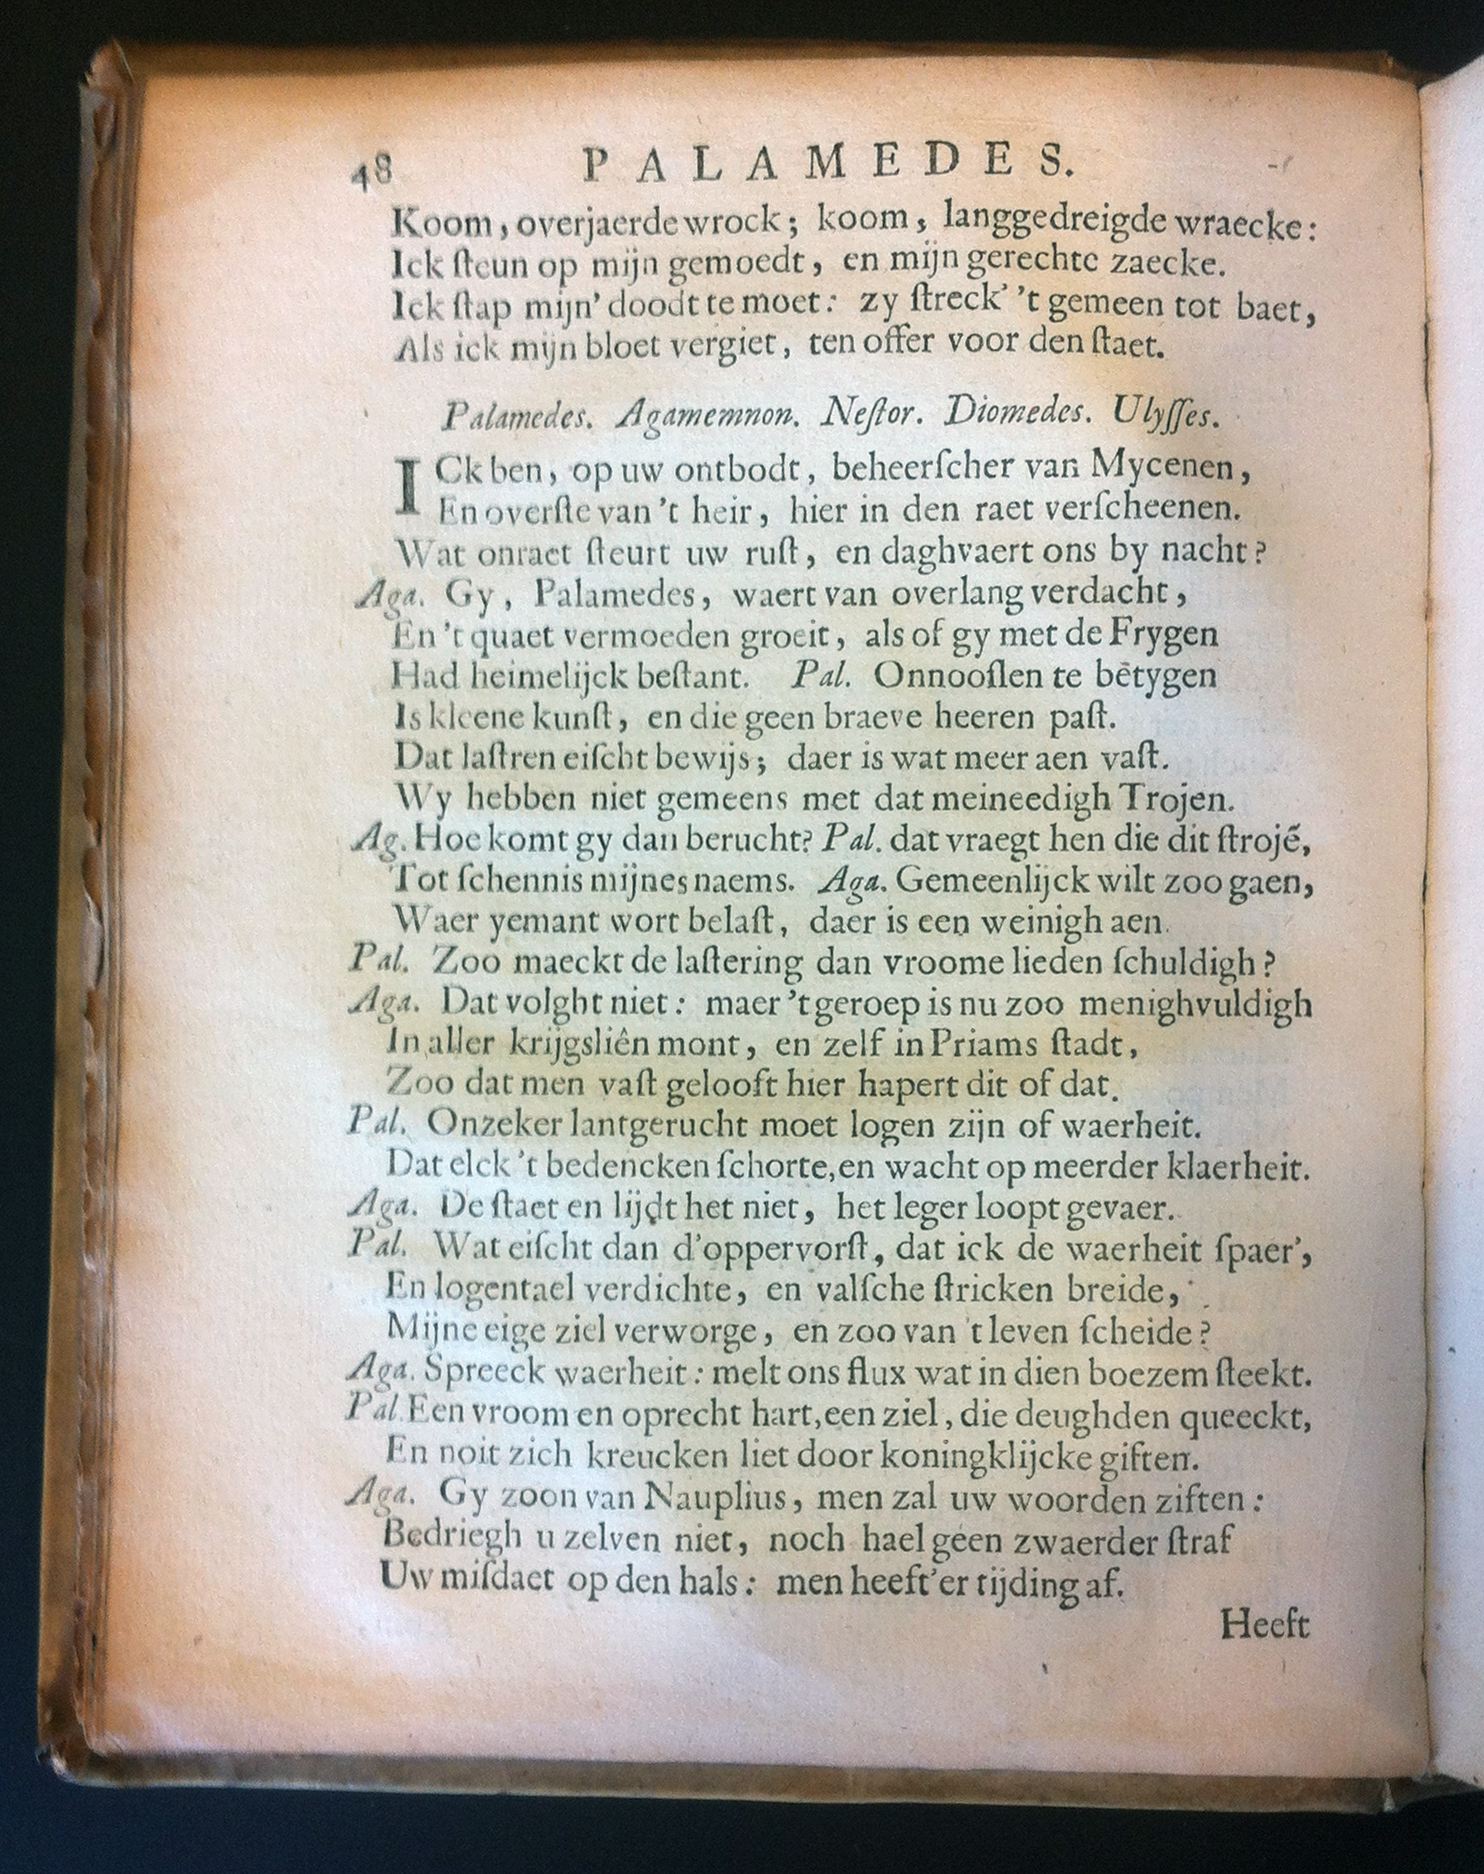 48 PALAMEDES.
Koom, overjaerde wrock; koom, langgedreigde wraecke:
Ick ſteun op mijn gemoedt, en mijn gerechte zaecke.
Ick ſtap mijn' doodt te moet: zy ſtreck' 't gemeen tot baet,
Als ick mijn bloet vergiet, ten offer voor den ſtaet.
Palamedes. Agamemnon. Neſtor. Diomedes. Ulyſſes.
ICk ben, op uw ontbodt, beheerſcher van Mycenen,
En overſte van 't heir, hier in den raet verſcheenen.
Wat onraet ſteurt uw ruſt, en daghvaert ons by nacht?
Aga. Gy, Palamedes, waert van overlang verdacht,
En 't quaet vermoeden groeit, als of gy met de Frygen
Had heimelijck beſtant. Pal. Onnooſlen te bêtygen
Is kleene kunſt, en die geen braeve heeren paſt.
Dat laſtren eiſcht bewijs; daer is wat meer aen vaſt.
Wy hebben niet gemeens met dat meineedigh Trojen.
Ag. Hoe komt gy dan berucht? Pal. dat vraegt hen die dit ſtrojẽ,
Tot ſchennis mijnes naems. Aga. Gemeenlijck wilt zoo gaen,
Waer yemant wort belaſt, daer is een weinigh aen.
Pal. Zoo maeckt de laſtering dan vroome lieden ſchuldigh?
Aga. Dat volght niet: maer 't geroep is nu zoo menighvuldigh
In aller krijgsliên mont, en zelf in Priams ſtadt,
Zoo dat men vaſt gelooft hier hapert dit of dat.
Pal. Onzeker lantgerucht moet logen zijn of waerheit.
Dat elck 't bedencken ſchorte, en wacht op meerder klaerheit.
Aga. De ſtaet en lijdt het niet, het leger loopt gevaer.
Pal. Wat eiſcht dan d'oppervorſt, dat ick de waerheit ſpaer',
En logentael verdichte, en valſche ſtricken breide,
Mijne eige ziel verworge, en zoo van 't leven ſcheide?
Aga. Spreeck waerheit: melt ons flux wat in dien boezem ſteekt.
Pal. Een vroom en oprecht hart, een ziel, die deughden queeckt,
En noit zich kreucken liet door koningklijcke giften.
Aga. Gy zoon van Nauplius, men zal uw woorden ziften:
Bedriegh u zelven niet, noch hael geen zwaerder ſtraf
Uw miſdaet op den hals: men heeft'er tijding af.
Heeft